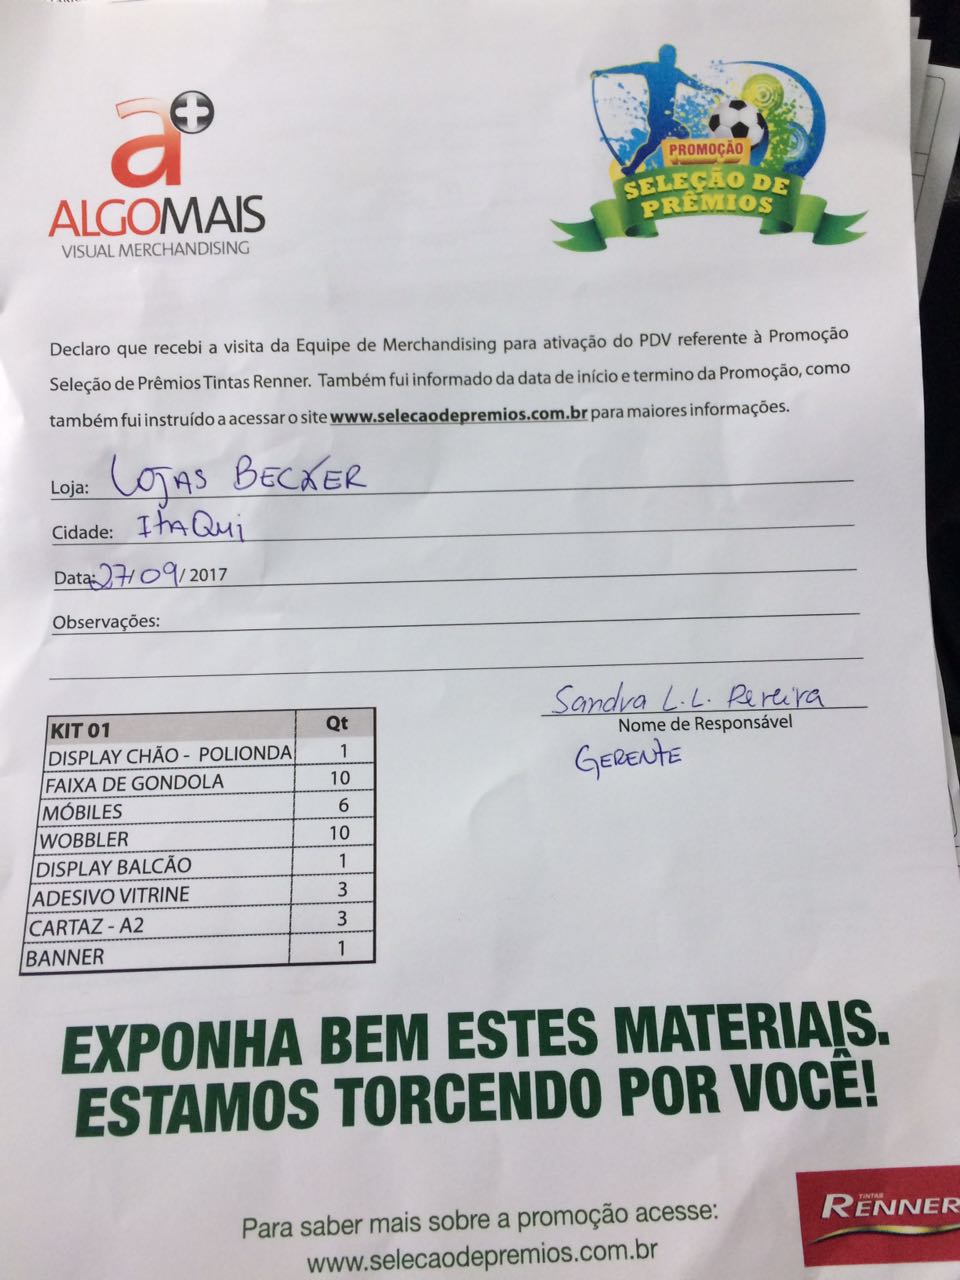 a+
ALGOMAIS
VISUAL MERCHANDISING
PROMOÇÃO
SELEÇÃO DE
PRÊMIOS
Declaro que recebi a visita da Equipe de Merchandising para ativação do PDV referente à Promoção
Seleção de Prêmios Tintas Renner. Também fui informado da data de início e termino da Promoção, como
também fui instruído a acessar o site www.selecaodepremios.com.br para maiores informações.
Loja: LOJAS BECKER
Cidade: ITAQUI
Data: 27/09/2017
Observações:
Sandra L.L. Pereira
Nome de Responsável
GERENTE
KIT 01 Qt
DISPLAY CHÃO - POLIONDA 1
FAIXA DE GONDOLA 10
MÓBILES 6
WOBBLER 10
DISPLAY BALCÃO 1
ADESIVO VITRINE 3
CARTAZ - A2 3
BANNER 1
EXPONHA BEM ESTES MATERIAIS.
ESTAMOS TORCENDO POR VOCÊ!
TINTAS
RENNER
Para saber mais sobre a promoção acesse:
www.selecaodepremios.com.br